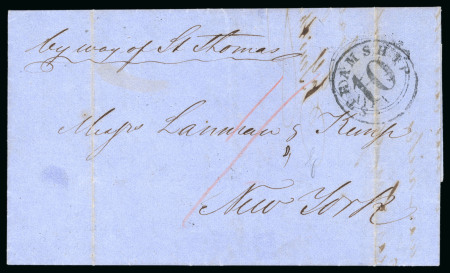 by way of St Thomas
STEAMSHIP
10
Messrs Lanman & Kemp
New York